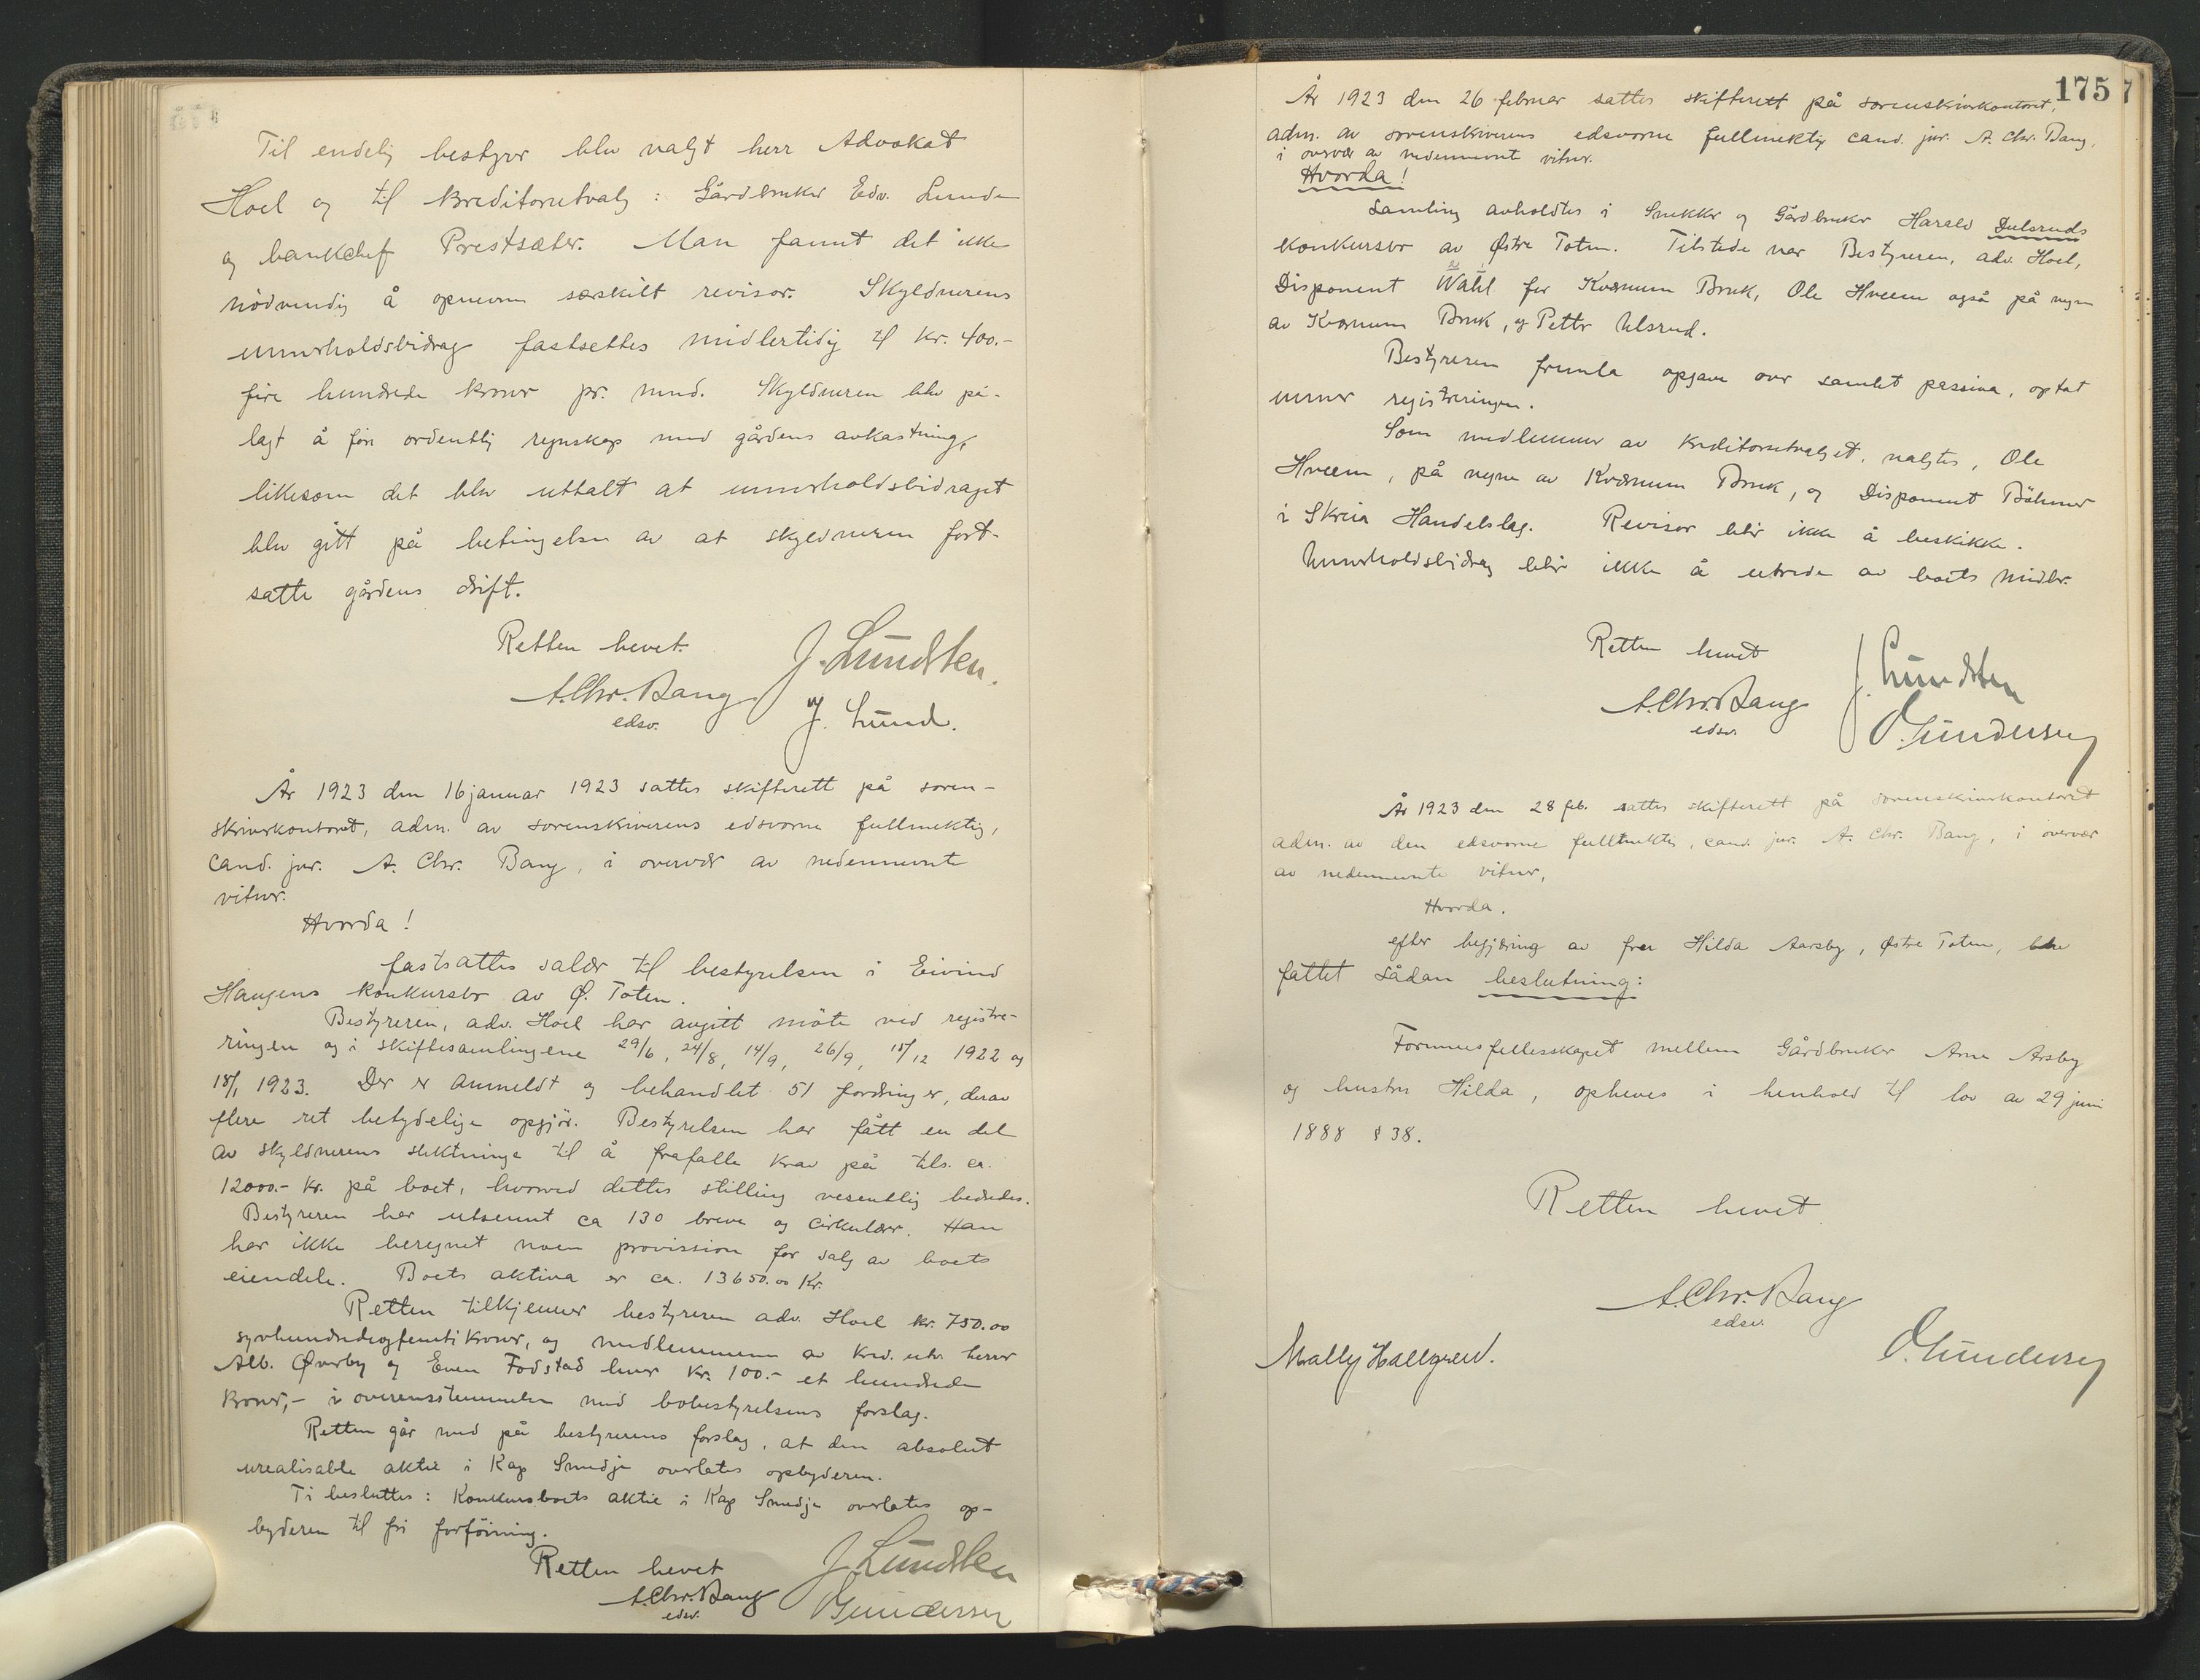 Til endelig bestyrer blev valgt herr Advokat
Hoel og til kreditorutvalg: Gårdbruker Edv. Lunde
og bankchef Prestsæter. Man fannt det ikke
nödvendig å opnevne særskilt revisor. Skyldnerens
unnerholdsbidrag fastsettes midlertidig til kr. 400.-
fire hundrede kroner pr. mnd. Skyldneren blev på-
lagt å före ordentlig regnskap med gårdens avkastning,
likesom det blev uttalt at unnerholdsbidraget
blev gitt på betingelse av at skyldneren fort-
satte gårdens drift.
Retten hevet.
J. Lundsten.
A. Chr. Bang
edsv.
J. Lund.
År 1923 den 16 januar 1923 sattes skifterett på soren-
skriverkontoret, adm. av sorenskriverens edsvorne fullmektig,
cand. jur. A. Chr. Bang, i overvær av nedennevnte
vitner.
Hvorda!
fastsattes salær til bestyrelsen i Eivind
Haugens konkursbo av Ø. Toten.
Bestyreren, adv. Hoel har avgitt möte ved registre-
ringen og i skiftesamlingene 29/6, 24/8, 14/9, 26/9, 15/12 1922 og
18/1 1923. Der er anmeldt og behandlet 51 fordringer, derav
flere ret betydelige opgjör. Bestyrelsen har fått en del
av skyldnerens slektninge til å frafalle krav på tils. ca.
12000.- kr. på boet, hvorved dettes stilling vesentlig bedredes.
Bestyreren har utsennt ca 130 breve og cirkulær. Han
har ikke beregnet noen provission for salg av boets
eiendele. Boets aktiva er ca. 13650.00 Kr.
Retten tilkjenner bestyreren adv. Hoel kr. 750.00
syvhundredeogfemti kroner, og medlemmene av kred. utv. herrer
Alb. Øverby og Even Fodstad hver kr. 100.- et hundrede
kroner,- i overensstemmelse med bobestyrelsens forslag.
Retten går med på bestyrerens forslag, at den absolut
urealisable aktie i Kap Smedje overlates opbyderen.
Ti besluttes: Konkursboets aktie i Kap Smedje overlates op-
byderen til fri forföining.
Retten hevet
J. Lundsten
A. Chr. Bang
edsv.
O Gundersen
175
År 1923 den 26 februar sattes skifterett på sorenskriverkontoret,
adm. av sorenskriverens edsvorne fullmektig cand. jur. A. Chr. Bang,
i overvær av nedennevnt vitner.
Hvorda!
Samling avholdtes i Snekker og Gårdbruker Harald Dulsruds
konkursbo av Østre Toten. Tilstede var Bestyreren, adv. Hoel,
Disponent Wahl for Kværnum Bruk, Ole Hveem også på vegne
av Kværnum Bruk, og Petter Ulsrud.
Bestyreren fremla opgave over samlet passiva, optat
unner registreringen.
Som medlemmer av kreditorutvalget, valgtes, Ole
Hveem, på vegne av Kværnum Bruk, og Disponent Böhmer
i Skreia Handelslag. Revisor blir ikke å beskikke.
Unnerholdsbidrag blir ikke å utrede av boets midler.
Retten hevet
J. Lundsten
A. Chr. Bang
edsv.
O. Gundersen
År 1923 den 28 feb. sattes skifterett på sorenskriverkontoret
adm. av den edsvorne fullmektig, cand. jur. A. Chr. Bang, i overvær
av nedennevnte vitner,
Hvorda.
efter begjæring av fru Hilda Aarsby, Østre Toten, blev
fattet sådan beslutning:
Formuesfellesskapet mellem Gårdbruker Arne Arsby
og hustru Hilda, opheves i henhold til lov av 29 juni
1888 § 38.
Retten hevet
A. Chr. Bang
edsv.
Mally Hallgren.
O. Gundersen